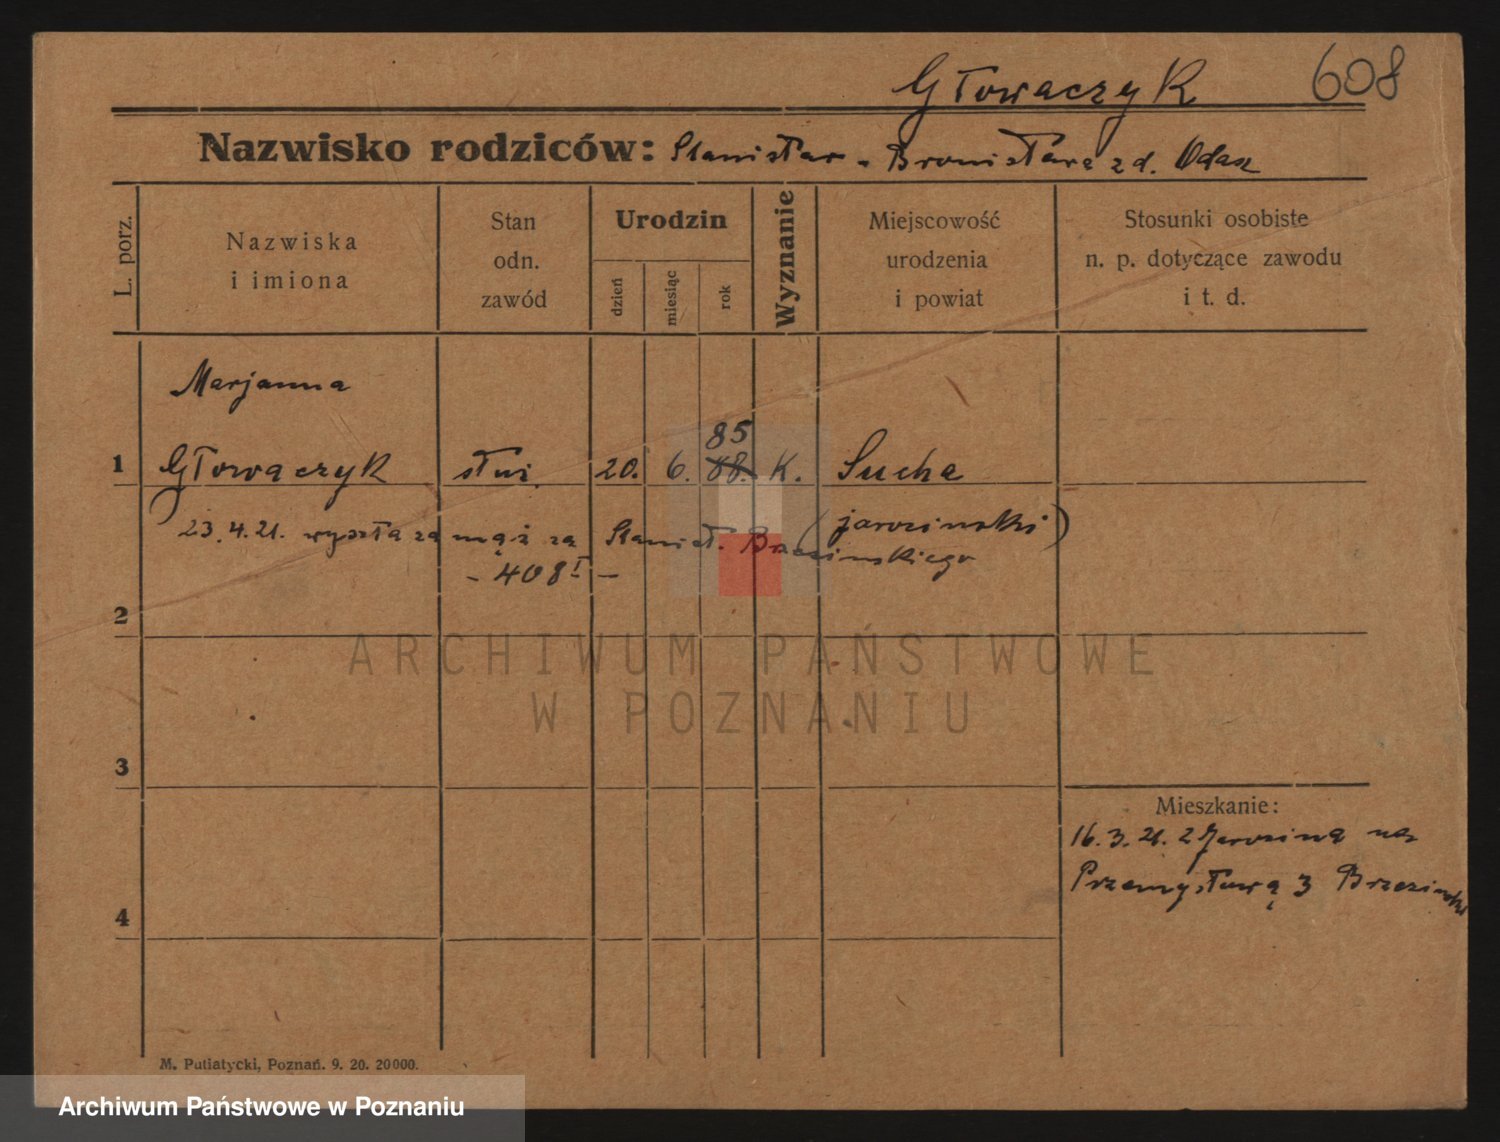 Głowaczyk 608
Nazwisko rodziców: Stanisław - Bronisława z d. Odasz
L. porz.
Nazwiska
i imiona
Stan
odn.
zawód
Urodzin
dzień
miesiąc
rok
Wyznanie
Miejscowość
urodzenia
i powiat
Stosunki osobiste
n. p. dotyczące zawodu
i t. d.
Marjanna
85
1 Głowaczyk służ. 20. 6. 88. K. Sucha
(jarocinski)
23.4.21. wyszła za mąż za Stanisł. Brzezinskiego
- 408 I -
2
ARCHIWUM PAŃSTWOWE
W POZNANIU
3
Mieszkanie:
16.3.21. z Jarocina na
Przemysłową 3 Brzezinski
4
M. Putiatycki, Poznań. 9. 20. 20000.
Archiwum Państwowe w Poznaniu